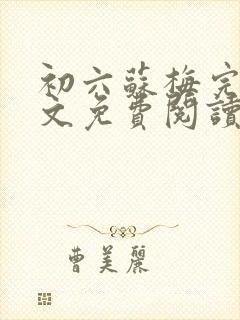 初六蘇梅完
文免費閱讀
曹美麗